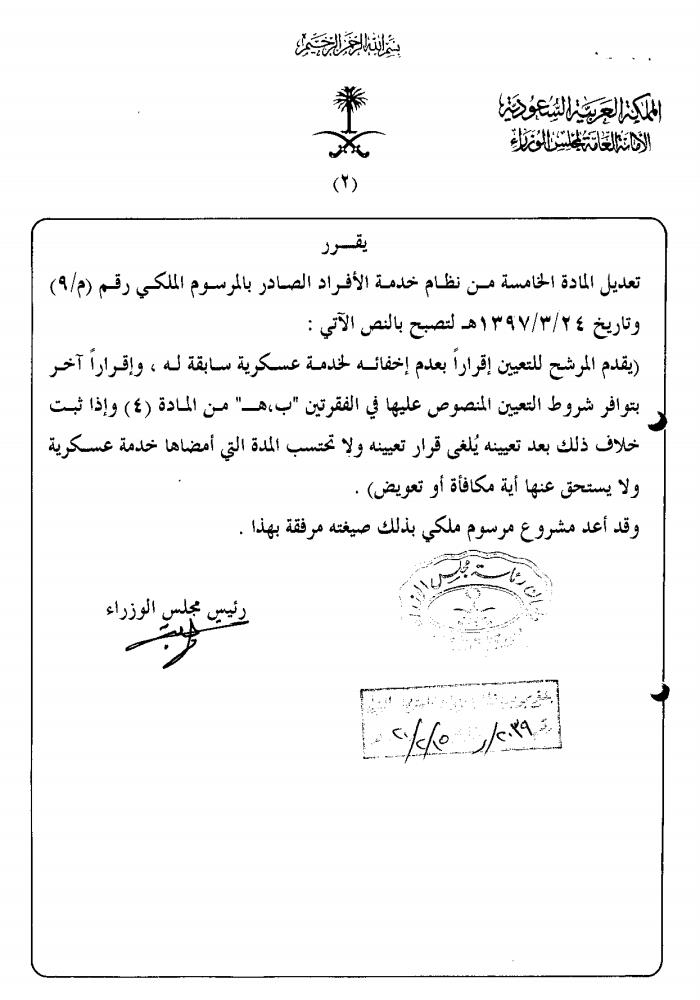 بسم الله الرحمن الرحيم
المملكة العربية السعودية
الأمانة العامة لمجلس الوزراء
(٢)
يقـــرر
تعديل المادة الخامسة مـن نظـام خدمـة الأفـراد الصـادر بالمرسـوم الملكـي رقـم (م/٩)
وتاريخ ١٣٩٧/٣/٢٤هـ لتصبح بالنص الآتي :
(يقدم المرشح للتعيين إقراراً بعدم إخفائـه لخدمة عسكرية سابقة له ، وإقـراراً آخـر
بتوافر شروط التعيين المنصوص عليها في الفقرتين "ب،هـ" مـن المـادة (٤) وإذا ثبـت
خلاف ذلك بعد تعيينه يُلغى قرار تعيينه ولا تحتسب المدة التي أمضاها خدمة عسـكرية
ولا يستحق عنها أية مكافأة أو تعويض) .
وقد أعد مشروع مرسوم ملكي بذلك صيغته مرفقة بهذا .
رئاسة مجلس الوزراء
رئيس مجلس الوزراء